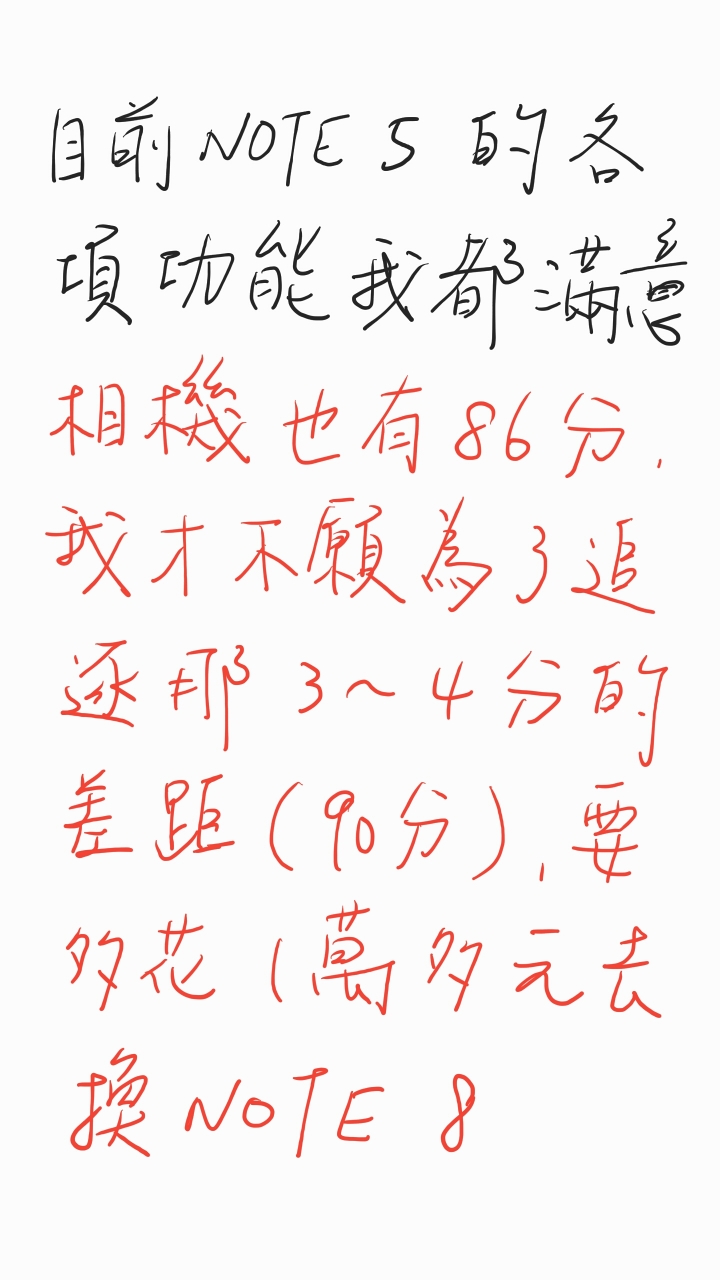 目前NOTE 5 的各
項功能我都滿意
相機也有86分,
我才不願為了追
逐那 3~4分的
差距(90分),要
多花1萬多元去
換NOTE 8